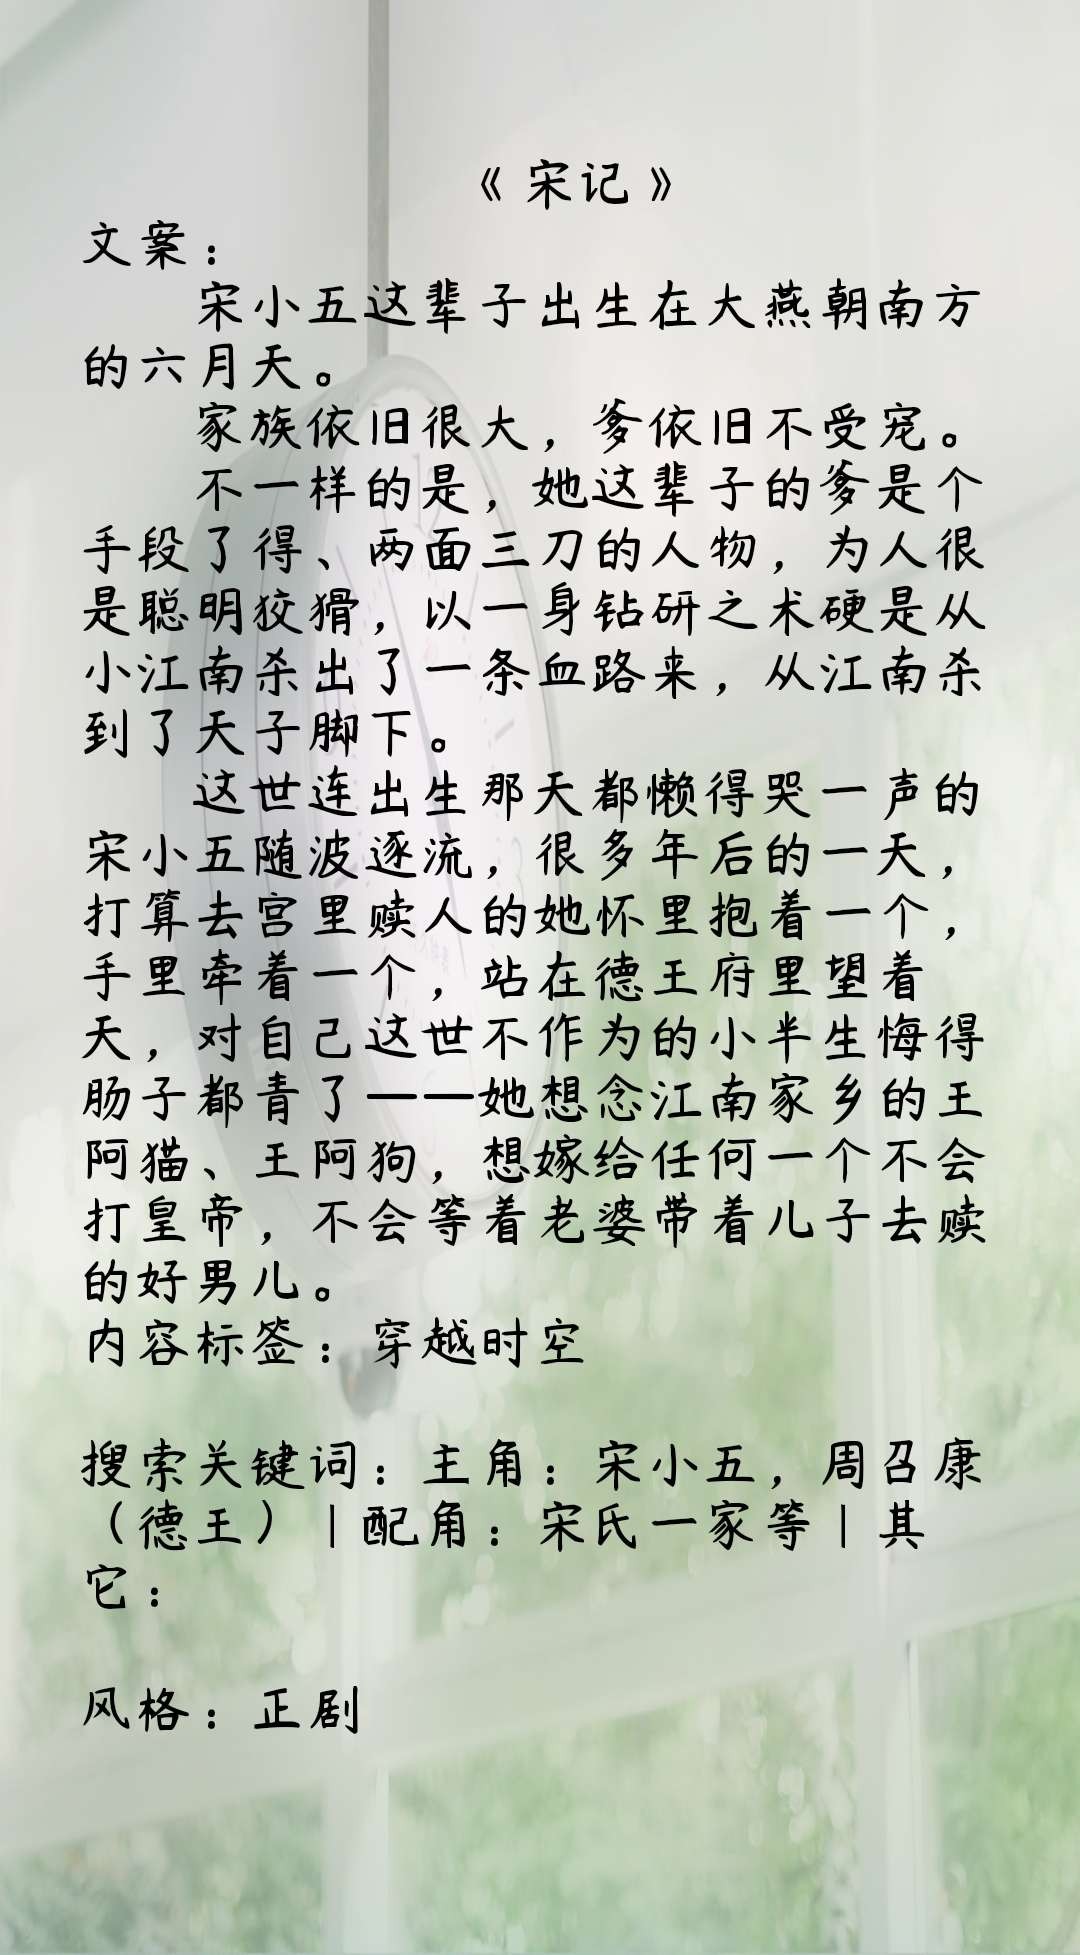 《宋记》
文案：
宋小五这辈子出生在大燕朝南方
的六月天。
家族依旧很大，爹依旧不受宠。
不一样的是，她这辈子的爹是个
手段了得、两面三刀的人物，为人很
是聪明狡猾，以一身钻研之术硬是从
小江南杀出了一条血路来，从江南杀
到了天子脚下。
这世连出生那天都懒得哭一声的
宋小五随波逐流，很多年后的一天，
打算去宫里赎人的她怀里抱着一个，
手里牵着一个，站在德王府里望着
天，对自己这世不作为的小半生悔得
肠子都青了——她想念江南家乡的王
阿猫、王阿狗，想嫁给任何一个不会
打皇帝，不会等着老婆带着儿子去赎
的好男儿。
内容标签：穿越时空
搜索关键词：主角：宋小五，周召康
（德王）┃配角：宋氏一家等┃其
它：
风格：正剧